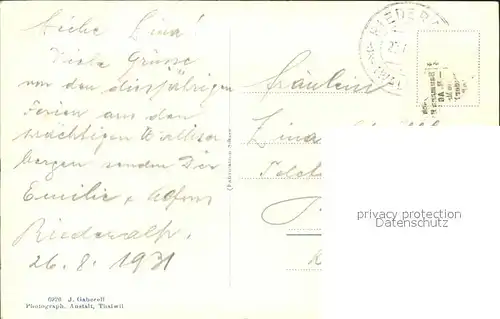 Liebe Lina!
Viele Grüsse
von den diesjährigen
Ferien aus den
prächtigen Walliser
bergen senden Dir
Emilie & Alfons
Riederalp,
26.8.1931
6926 J. Gaberell
Photograph. Anstalt, Thalwil
Fräulein
Lina
privacy protection
Datenschutz